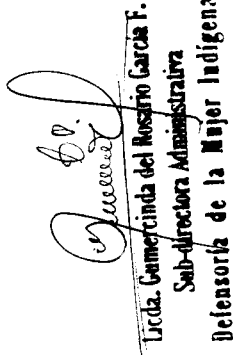 Licda. Gumercinda del Rosario García F.
Sub-directora Administrativa
Defensoría de la Mujer Indígena